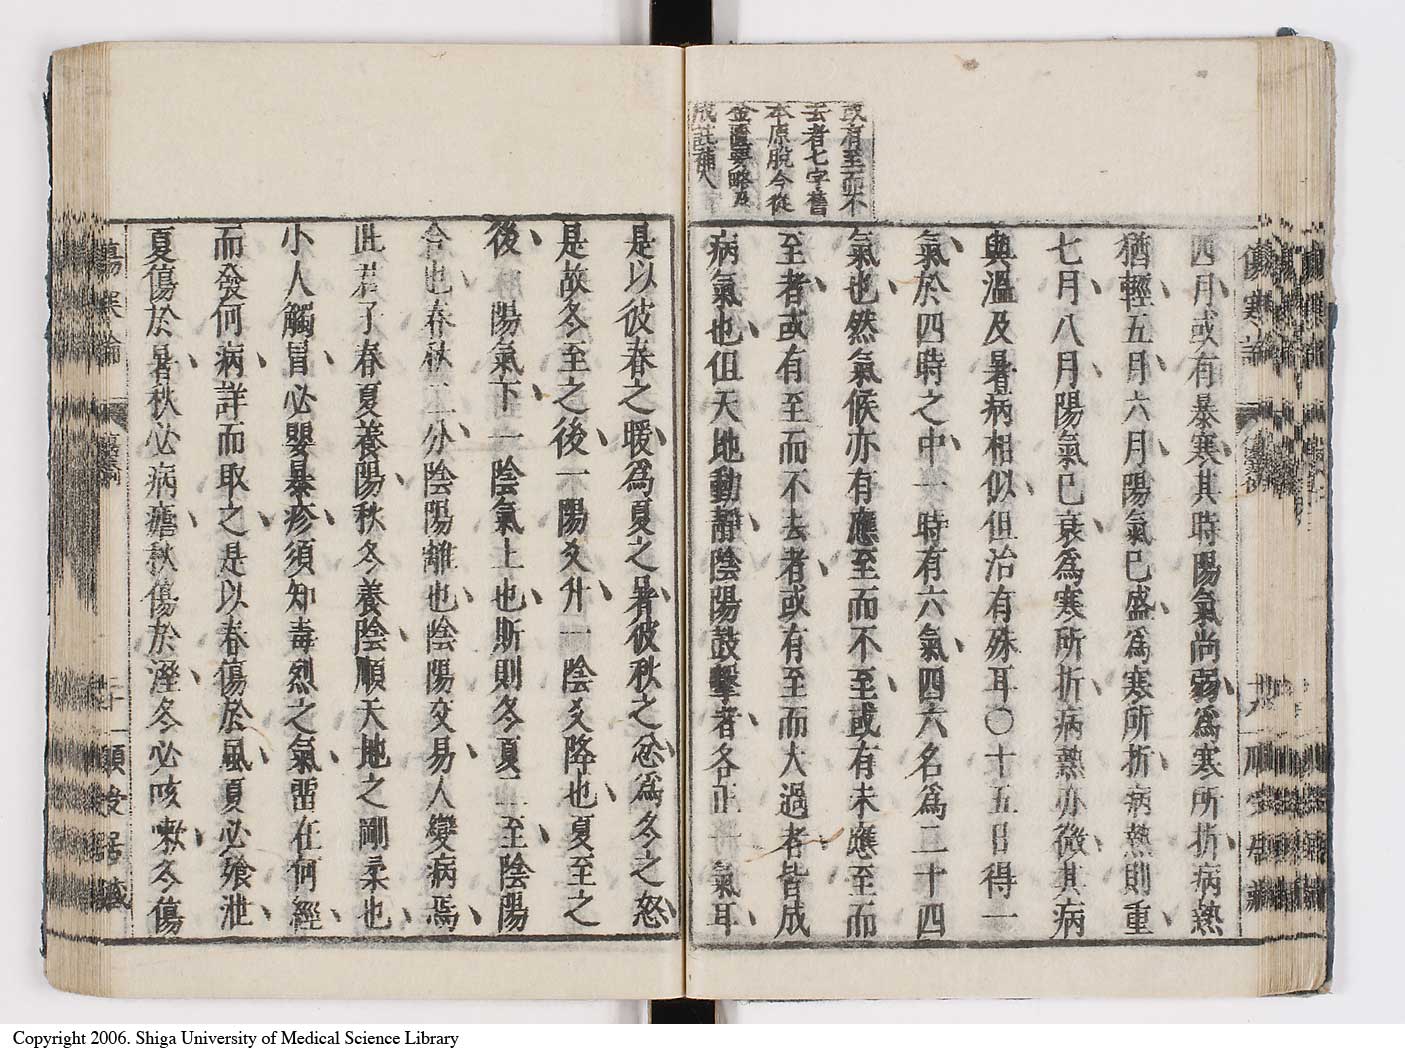 或有至而不
去者七字舊
本原脫今從
金匱要略及
成註補入
四月或有暴寒其時陽氣尚弱為寒所折病熱
猶輕五月六月陽氣已盛為寒所折病熱則重
七月八月陽氣已衰為寒所折病熱亦微其病
與溫及暑病相似但治有殊耳〇十五日得一
氣於四時之中一時有六氣四六名為二十四
氣也然氣候亦有應至而不至或有未應至而
至者或有至而不去者或有至而大過者皆成
病氣也但天地動靜陰陽鼓擊者各正一氣耳
是以彼春之暖為夏之暑彼秋之忿為冬之怒
是故冬至之後一陽爻升一陰爻降也夏至之
後一陽氣下一陰氣上也斯則冬夏二至陰陽
合也春秋二分陰陽離也陰陽交易人變病焉
此君子春夏養陽秋冬養陰順天地之剛柔也
小人觸冒必嬰暴疹須知毒烈之氣留在何經
而發何病詳而取之是以春傷於風夏必飱泄
夏傷於暑秋必病瘧秋傷於溼冬必咳嗽冬傷
傷寒論
傷寒論
Copyright 2006. Shiga University of Medical Science Library